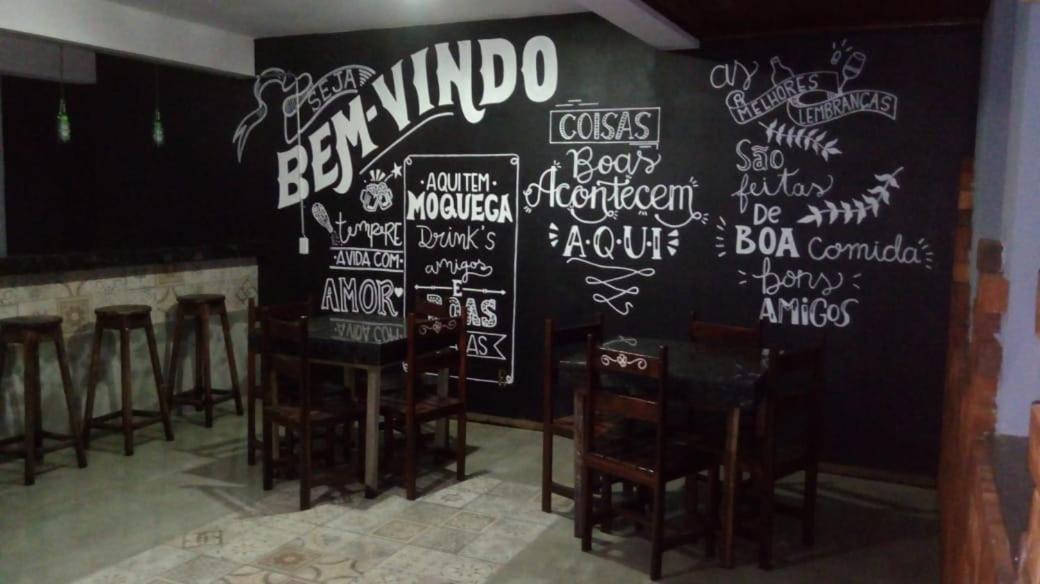 SEJA
BEM-VINDO
tempere
A VIDA COM
AMOR
AQUI TEM
MOQUEGA
Drink's
amigos
E
BOAS
COISAS
Boas
Acontecem
AQUI
as
MELHORES
LEMBRANÇAS
São
feitas
DE
BOA comida
bons
AMIGOS